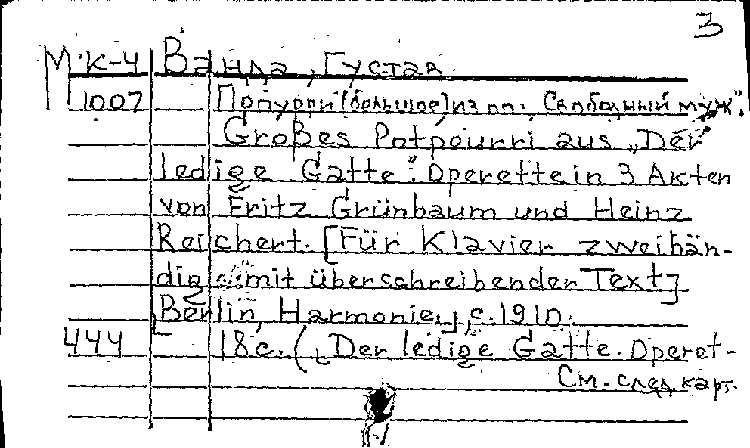 3
М.К-4 Ванда, Густав
1007 Попурри (большое) из оп. "Свободный муж".
Großes Potpourri aus „Der
ledige Gatte". Operette in 3 Akten
von Fritz Grünbaum und Heinz
Reichert. [Für Klavier zweihän-
dig mit überschreibenden Text]
[Berlin, Harmonie, c. 1910.
444 18 с. („Der ledige Gatte. Operet-
См. след карт.